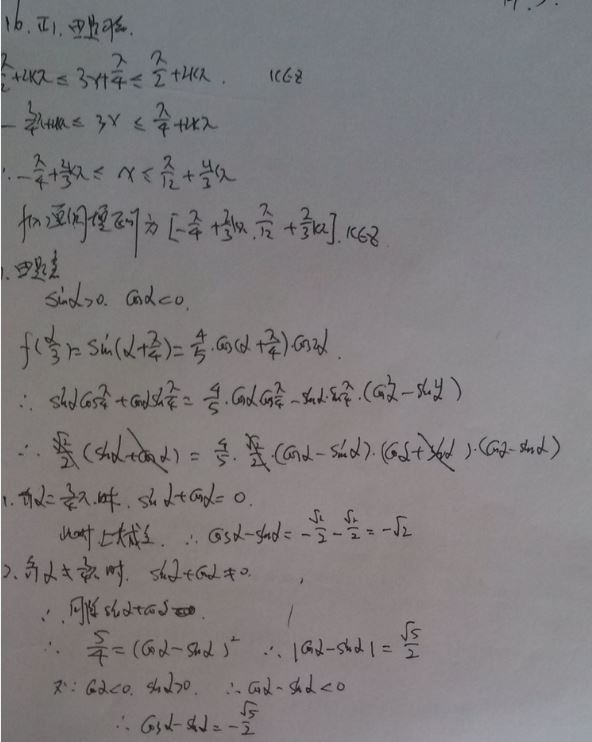 16. 解1. 由题意.
π/2+2kπ ≤ 3x+π/4 ≤ π/2+2kπ. k∈Z
-3/4π+2kπ ≤ 3x ≤ π/4+2kπ
∴ -π/4+2/3kπ ≤ x ≤ π/12+2/3kπ
f(x)递增区间为[-π/4+2/3kπ, π/12+2/3kπ]. k∈Z
由题意
sinα>0. cosα<0.
f(α/3)=sin(α+π/4)=4/5·cos(α+π/4)·cos2α.
∴ sinαcosπ/4+cosαsinπ/4=4/5·cosαcosπ/4-sinα·sinπ/4·(cos²α-sin²α)
∴ √2/2(sinα+cosα)=4/5·√2/2·(cosα-sinα)·(cosα+sinα)·(cosα-sinα)
1. 当α=3/4π时. sinα+cosα=0.
此时上式成立. ∴ cosα-sinα=-√2/2-√2/2=-√2
2. 当α≠3/4π时. sinα+cosα≠0.
∴ 同除sinα+cosα
∴ 5/4=(cosα-sinα)² ∴ |cosα-sinα|=√5/2
又∵ cosα<0. sinα>0. ∴ cosα-sinα<0
∴ cosα-sinα=-√5/2